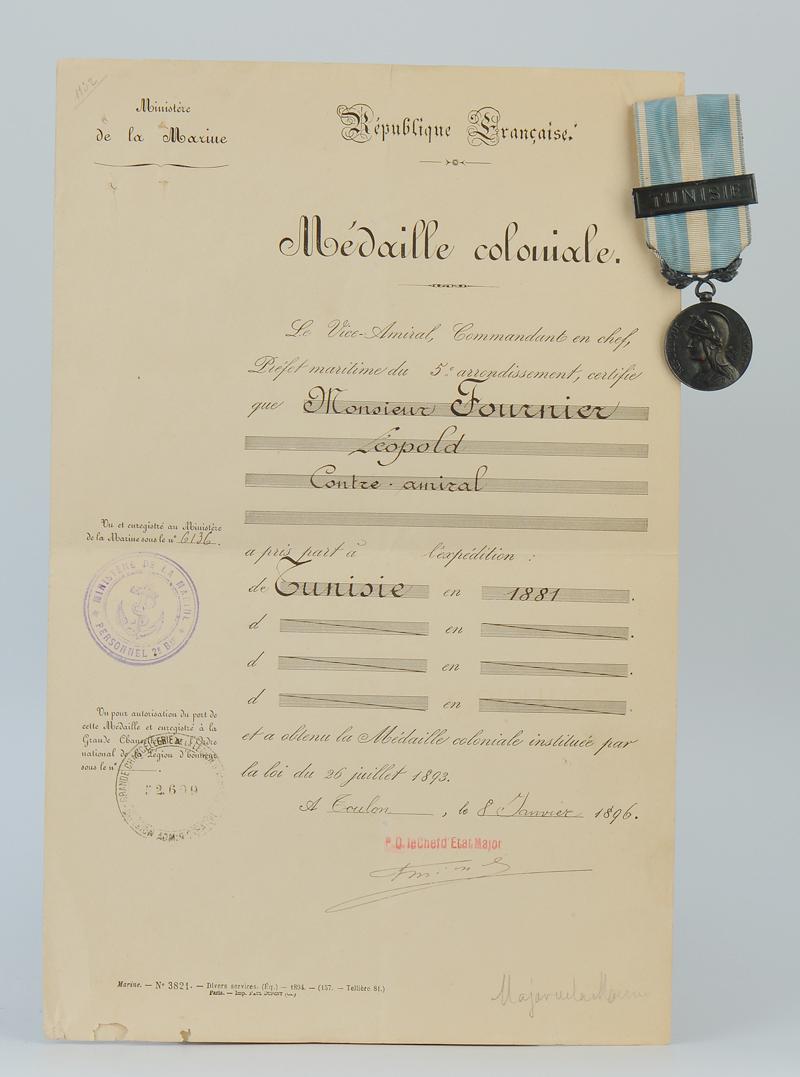 1132
Ministère
de la Marine
République Française.
TUNISIE
Médaille coloniale.
Le Vice-Amiral, Commandant en chef,
Préfet maritime du 5e arrondissement, certifie
que Monsieur Fournier
Léopold
Contre-amiral
Vu et enregistré au Ministère
de la Marine sous le n° 6136.
MINISTÈRE DE LA MARINE
PERSONNEL 2e
a pris part à l'expédition :
de Tunisie en 1881.
d en .
d en .
d en .
Vu pour autorisation du port de
cette Médaille et enregistré à la
Grande Chancellerie de l'Ordre
national de la Légion d'honneur
sous le n° .
GRANDE CHANCELLERIE
52699
et a obtenu la Médaille coloniale instituée par
la loi du 26 juillet 1893.
A Toulon, le 8 Janvier 1896.
P.O. le Chef d'Etat Major
Marine. — N° 3821. — Divers services. (Éq.) — 1894. — (157. — Tellière 81.)
Paris. — Imp. PAUL DUPONT
Major de la Marine